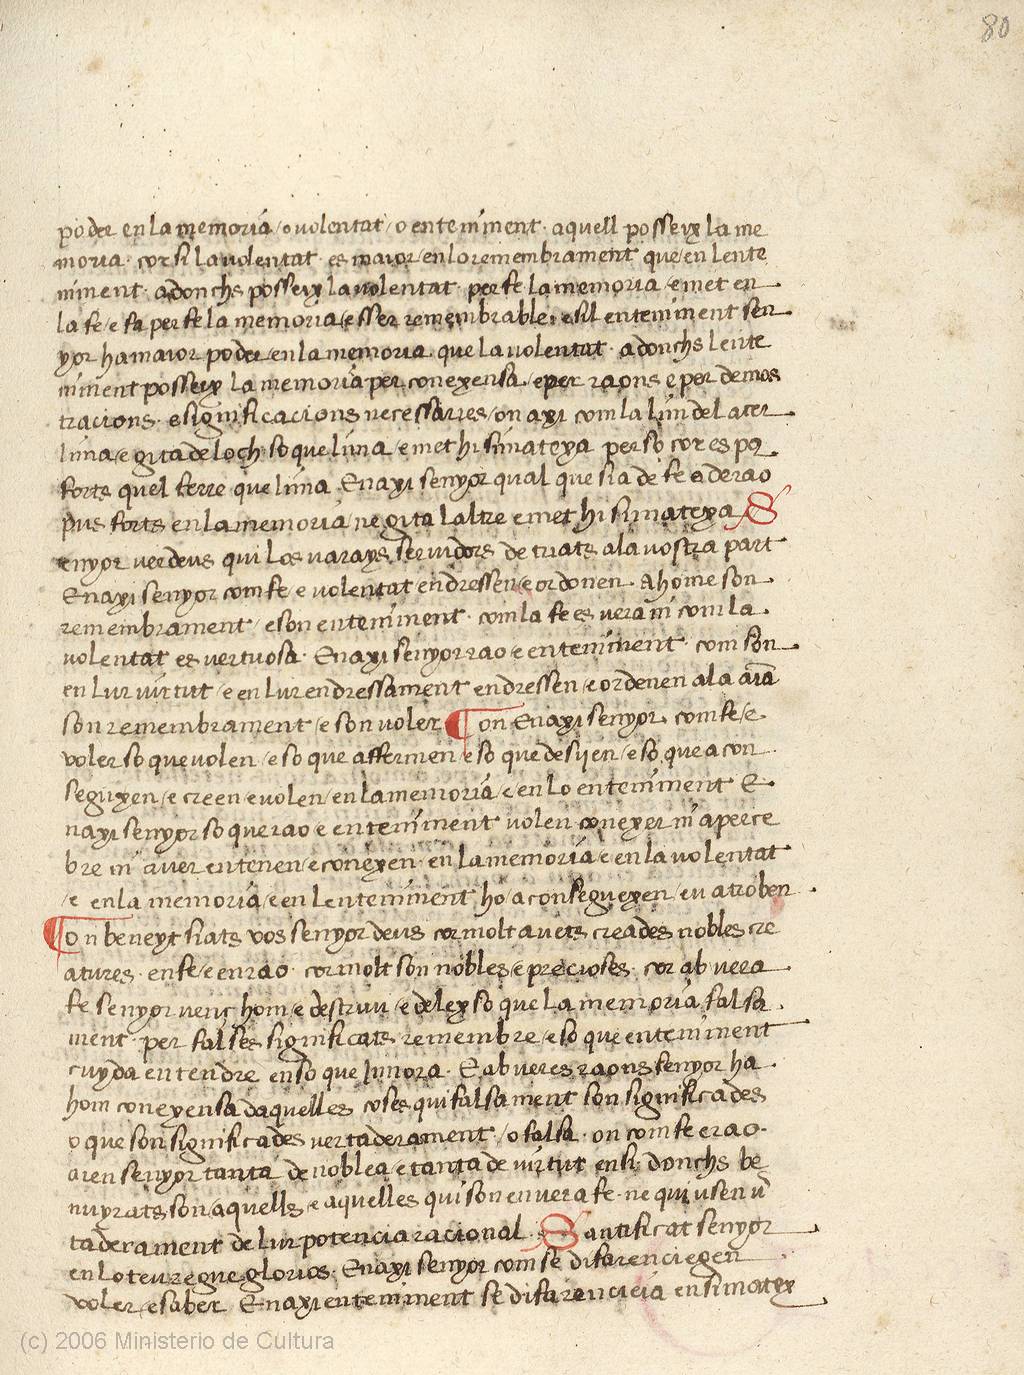 80
poder en la memoria / o volentat / o enteniment · aquell posseyx la me
moria · cor si la volentat · es maior / en lo remembrament que en lente
niment · adonchs posseyx la volentat · per fe la memoria / e met en
la fe / e fa per fe la memoria / esser remembrable · e sil enteniment sen
yor ha maior poder / en la memoria · que la volentat · adonchs lente
niment posseyx la memoria per conexensa / e per raons e per demos
tracions · e significacions necessaries / on axi com la lun del acer
luna / e gita de loch · so que luna / e met hi si matexa per so cor es pq
forts quel ferre que luna · Enaxi senyor qual que sia de fe o de rao
pus forts en la memoria / ne gita laltre e met hi si matexa S
enyor ver deus qui los varays servidors de triats a la vostra part
Enaxi senyor com fe e volentat endressen / e ordonen · A home son
remembrament / e son enteniment · com la fe es vera ni com la ·
volentat es vertuosa · Enaxi senyor rao e enteniment · com son
en lur virtut / e en lur endressament endressen / e ordenen a la aīa
son remembrament / e son voler ¶ on Enaxi senyor com fe / e
voler so que volen / e so que affermen e so que desijen / e so que acon
seguxen / e creen e volen / en la memoria / e en lo enteniment E
naxi senyor so que rao e enteniment volen conexer ni aperce
bre ni aver entenen / e conexen · en la memoria e en la volentat
/ e en la memoria / e en lenteniment ho / aconseguexen / eu atroben ·
¶ on beneyt siats vos senyor deus cor molt avets creades nobles cre
atures · en fe / e en rao · cor molt son nobles / e precioses · cor ab vera
fe senyor venç hom / e destruu / e delex so que la memoria falsa ·
ment · per falses significats remembre / e so que enteniment
cuyda entendre en so que jnnora · E ab veres raons senyor ha
hom conexensa daquelles coses qui falsament son significades
o que son significades vertaderament / o falsa · on com fe e rao ·
aien senyor tanta de noblea / e tanta de virtut en si · donchs be
nuyrats son / aquells e aquelles qui son en vera fe · ne qui usen v̄
taderament de lur potencia racional · Santificat senyor
en lo teu regne glorios · Enaxi senyor com se difarenciegen
voler / e saber Enaxi enteniment se difarencieia en si matex
(c) 2006 Ministerio de Cultura